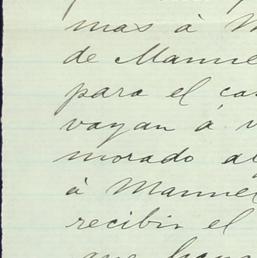 mas á M
de Manue
para el ca
vayan á v
morado al
á Manuel
recibir el
que haya